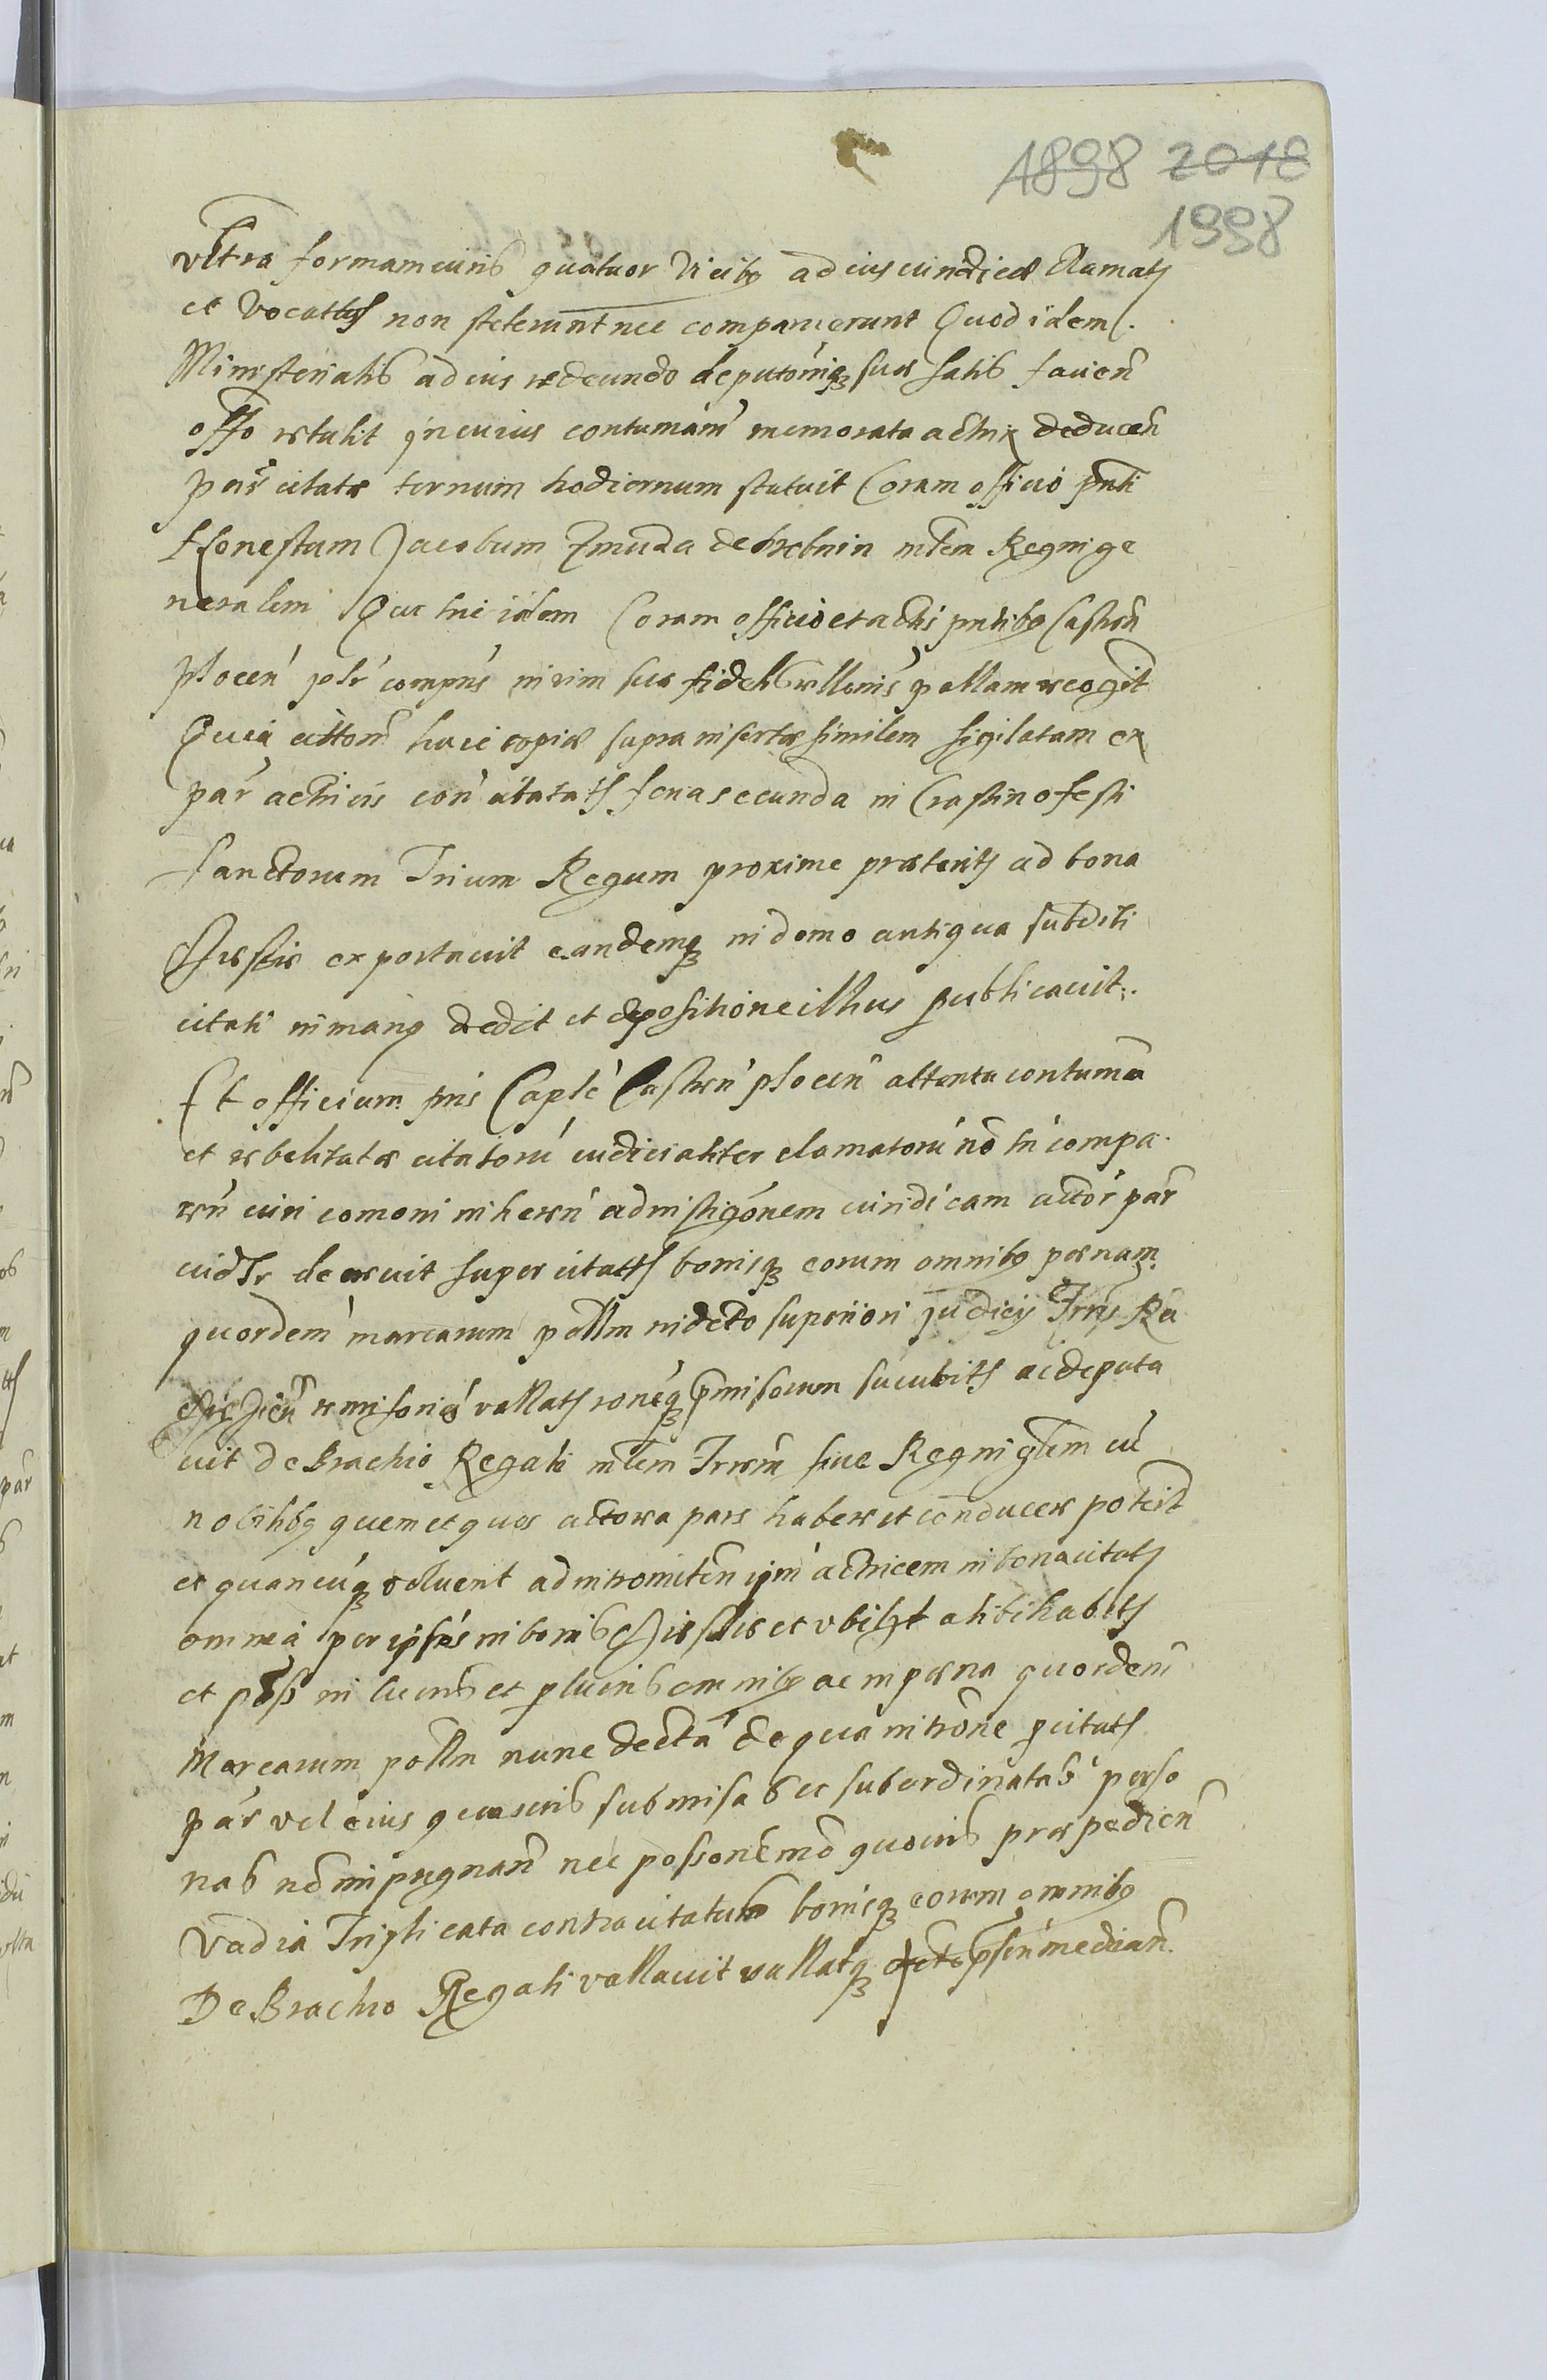 1898 2018
1998
vltra formam iuris quatuor vicibq ad ius iuridice clamats
et vocattus non steterunt nec comparuerunt Quod idem
Ministerialis ad ius redeundo deputonique sue satis facien
offo retulit in cuius contumam memorata actrix deducen
pars citata ternum hodiernum statuit Coram officio pnti
Honestum Jacobum Zmuda de mtem Regni ge
neralem Qui hic idem Coram officio et actis pntibq Castren
plocen plr compns in vim sue fidelis rllonis pallam recogt
Quia citton huic copiæ supra insertæ similem sigilatam ex
par actricis con citatats feria secunda in Crastino festi
sanctorum Trium Regum proxime præterits ad bona
exportauit eandemq in domo antiqua subditi
citati in manq dedit et depositione illius publicauit.
Et officium pns Caple Castren plocen attenta contuma
et rebelitate citatoru iudicialiter clamatoru no tn compa
ren iuri comoni inheren ad instigonem iuridicam actor par
decreuit super citatts bonisq eorum omnibq pænam
quordem marcarum pollm in decto superiori judicij Trris Ra
remisoriæ vallats roneq pmisorum sucubits ac deputa
uit de Brachio Regali mtem Trrm siue Regni gtem cu
nobilibq quem et quos actorea pars habere et conducere poterit
et quancuq voluerit ad intromiten ipm actricem in bona citats
omnia per ipsos in bonis et vbilzt alibi habits
et poss in lucris et pluris omnibq ac in pæna quordem
Marcarum pollm nunc decta de qua introne p citats
par vel eius quasuis submisas et subordinatas perso
nas no impugnan nec possone mo quouis præpedien
vadia Triplicata contra citatum bonisq eorum omnibq
De Brachio Regali vallauit vallatq decto psen median